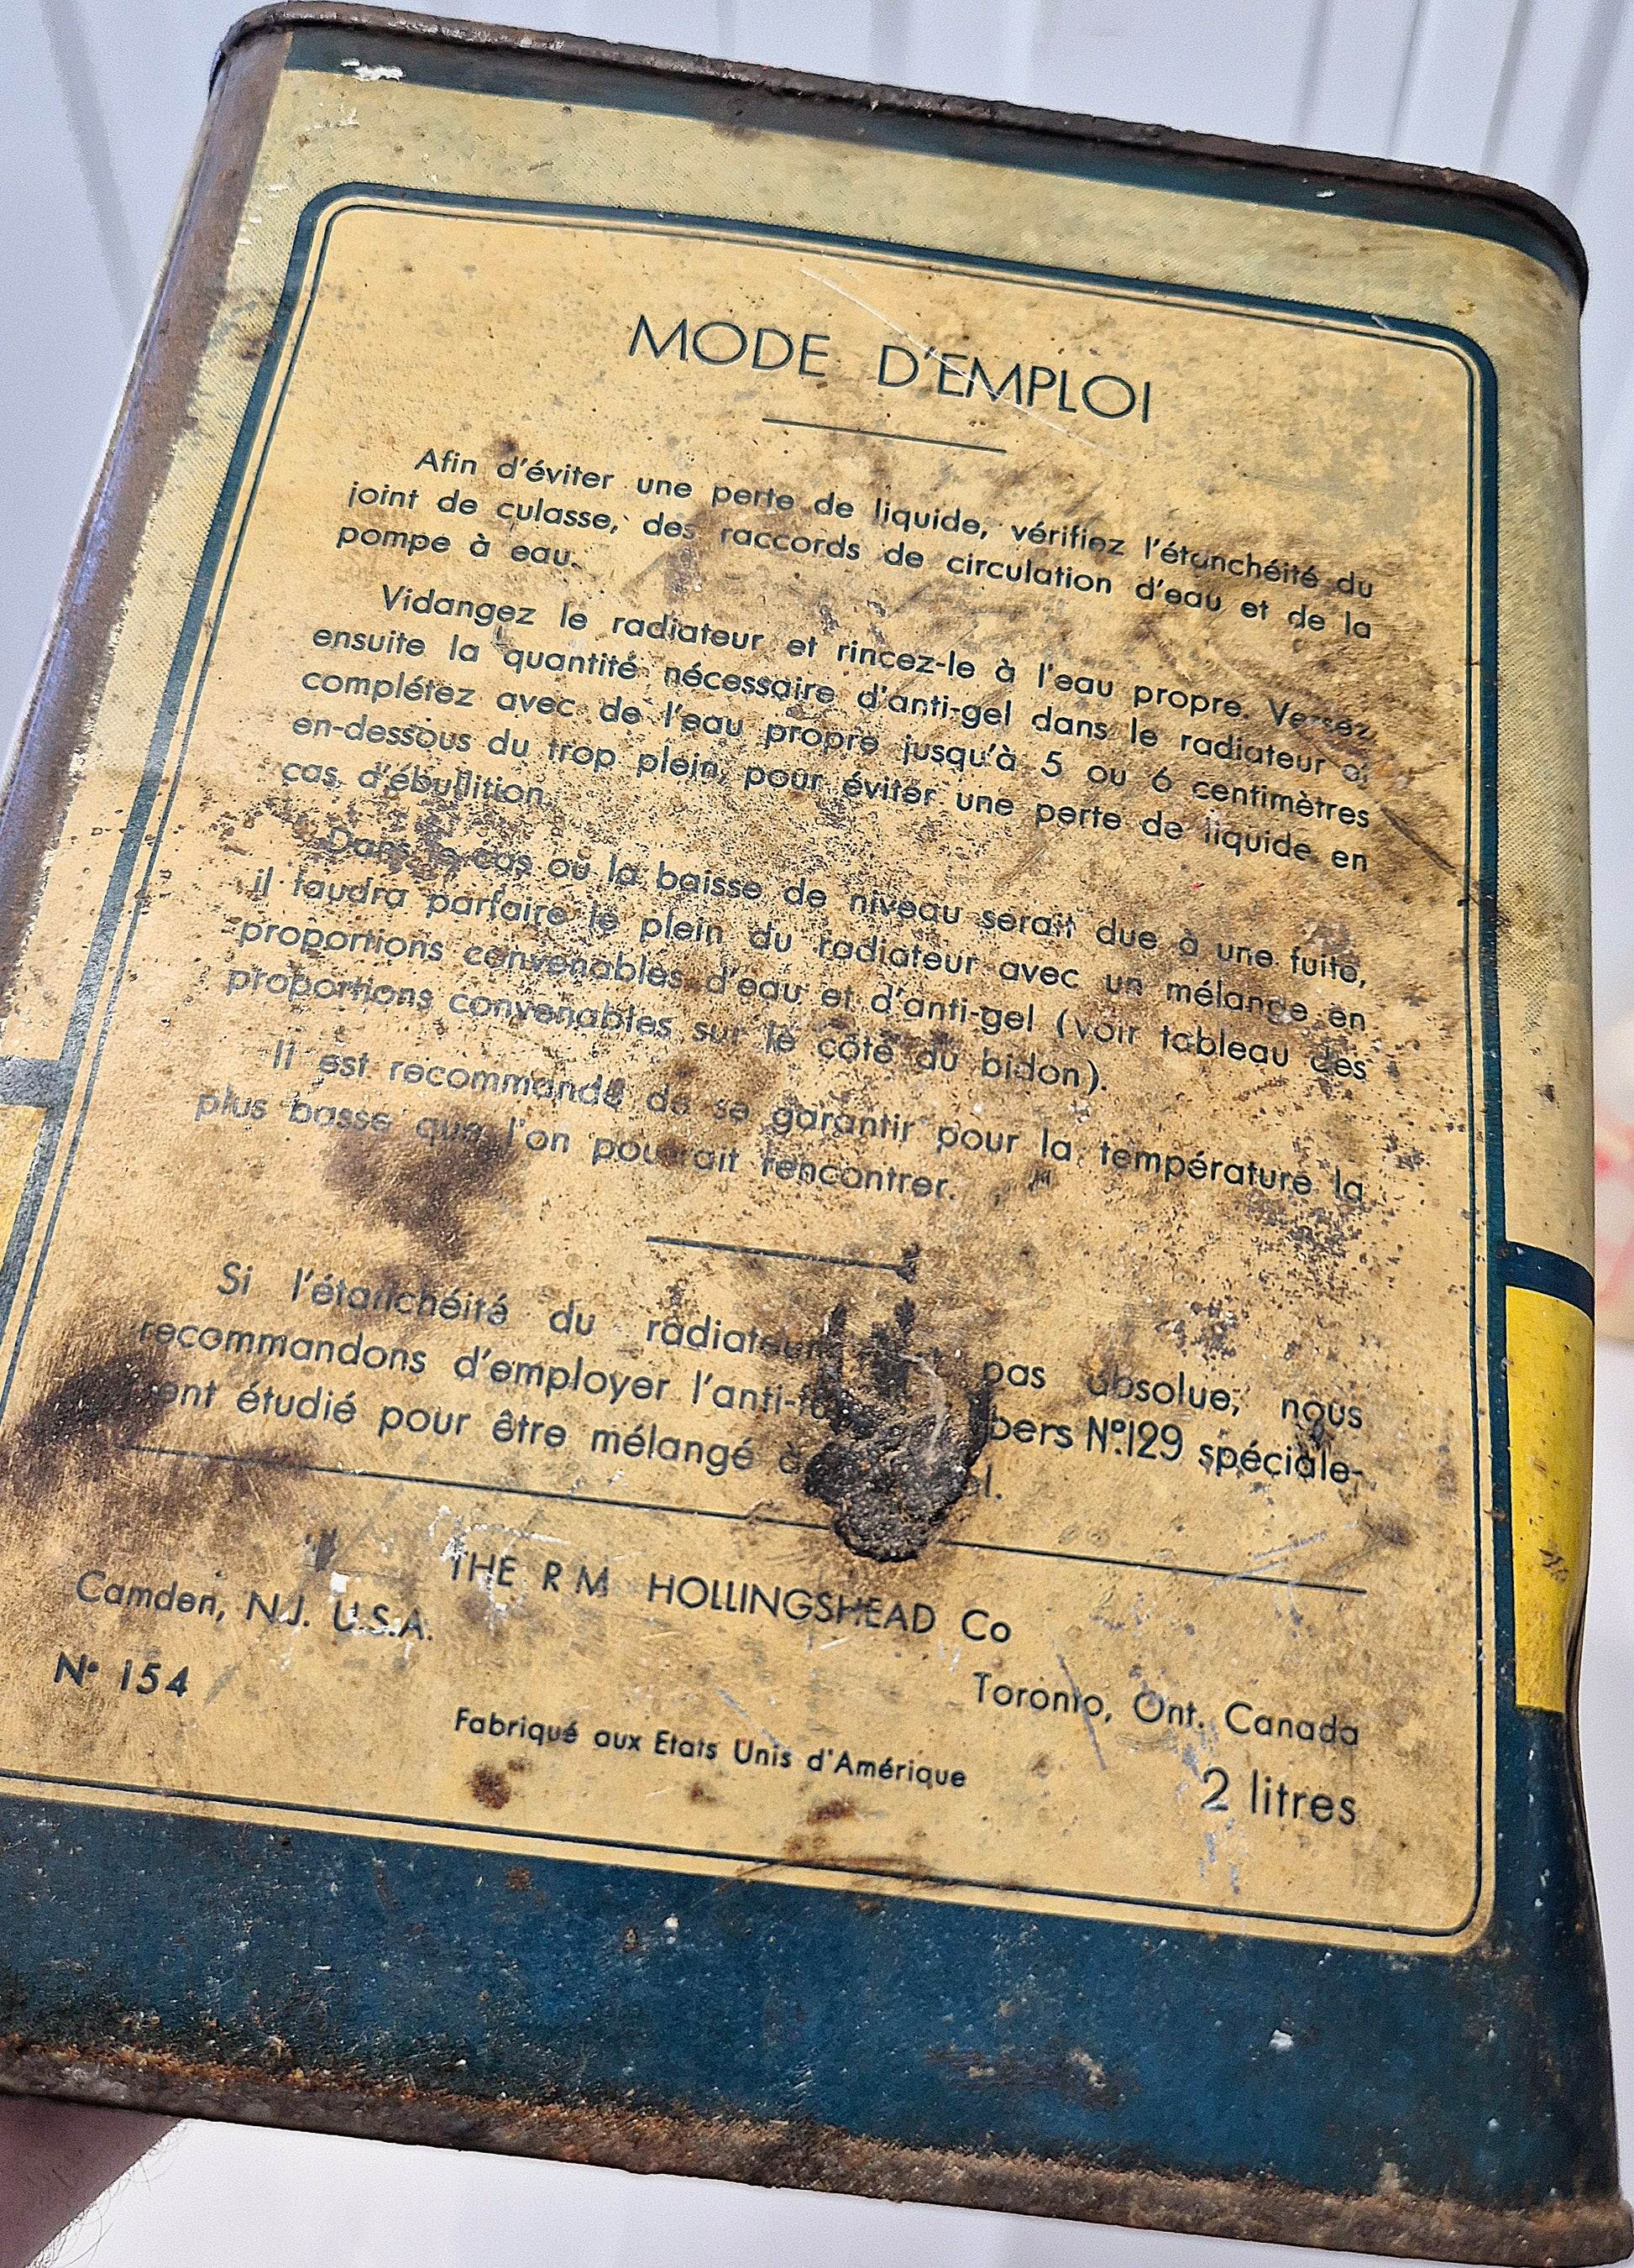 MODE D'EMPLOI
Afin d'éviter une perte de liquide, vérifiez l'étanchéité du
joint de culasse, des raccords de circulation d'eau et de la
pompe à eau.
Vidangez le radiateur et rincez-le à l'eau propre. Versez
ensuite la quantité nécessaire d'anti-gel dans le radiateur et
complétez avec de l'eau propre jusqu'à 5 ou 6 centimètres
en-dessous du trop plein, pour éviter une perte de liquide en
cas d'ébullition.
Dans le cas où la baisse de niveau serait due à une fuite,
il faudra parfaire le plein du radiateur avec un mélange en
proportions convenables d'eau et d'anti-gel (voir tableau des
proportions convenables sur le côté du bidon).
Il est recommandé de se garantir pour la température la
plus basse que l'on pourrait rencontrer.
Si l'étanchéité du radiateur pas absolue, nous
recommandons d'employer l'anti- N° 129 spéciale-
étudié pour être mélangé à
THE R M HOLLINGSHEAD Co
Camden, N.J. U.S.A.
Toronto, Ont. Canada
N° 154
Fabriqué aux Etats Unis d'Amérique
2 litres